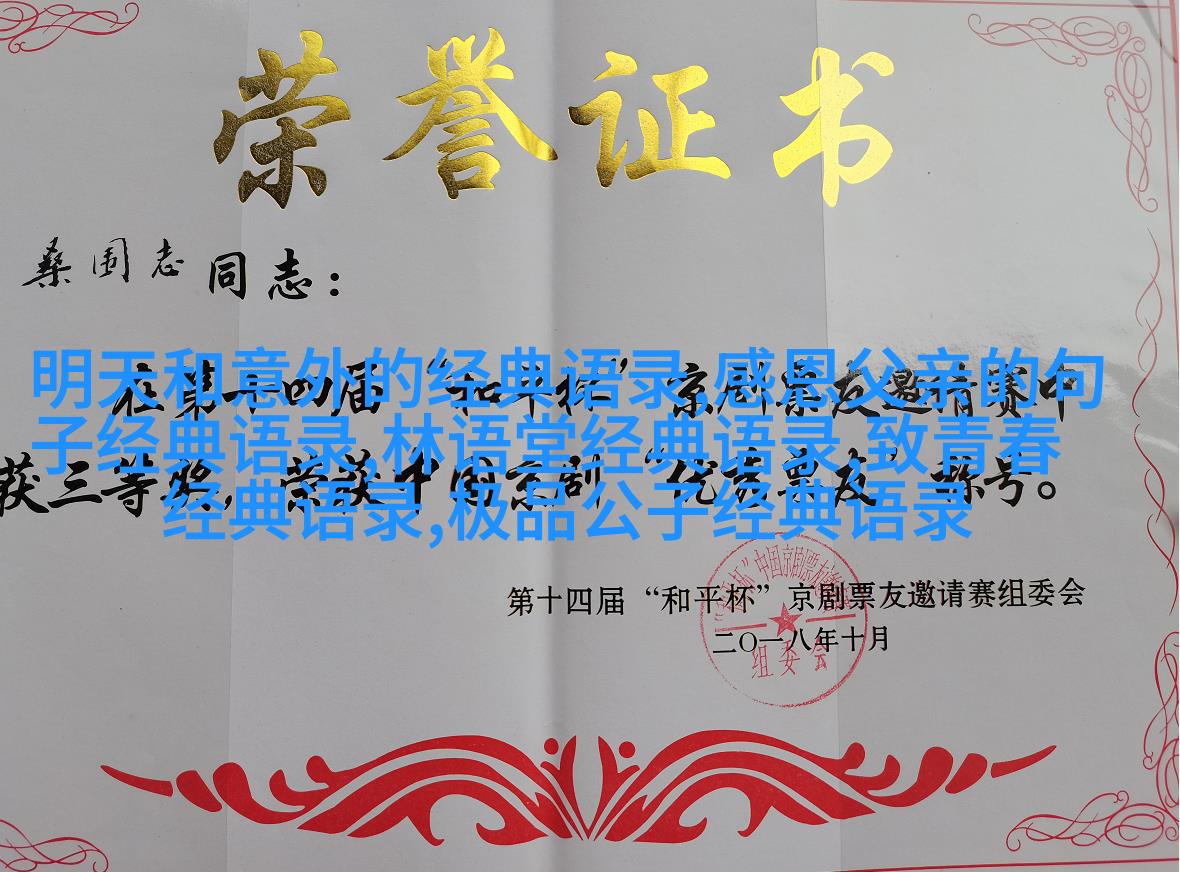 荣誉证书
桑国志同志：
明天和意外的经典语录,感恩父亲的句
在第十四届“和平杯”京剧票友邀请赛中
子经典语录,林语堂经典语录,致青春
获三等奖，荣获中国京剧“优秀票友”称号。
经典语录,极品公子经典语录
第十四届“和平杯”京剧票友邀请赛组委会
二〇一八年十月
组委会